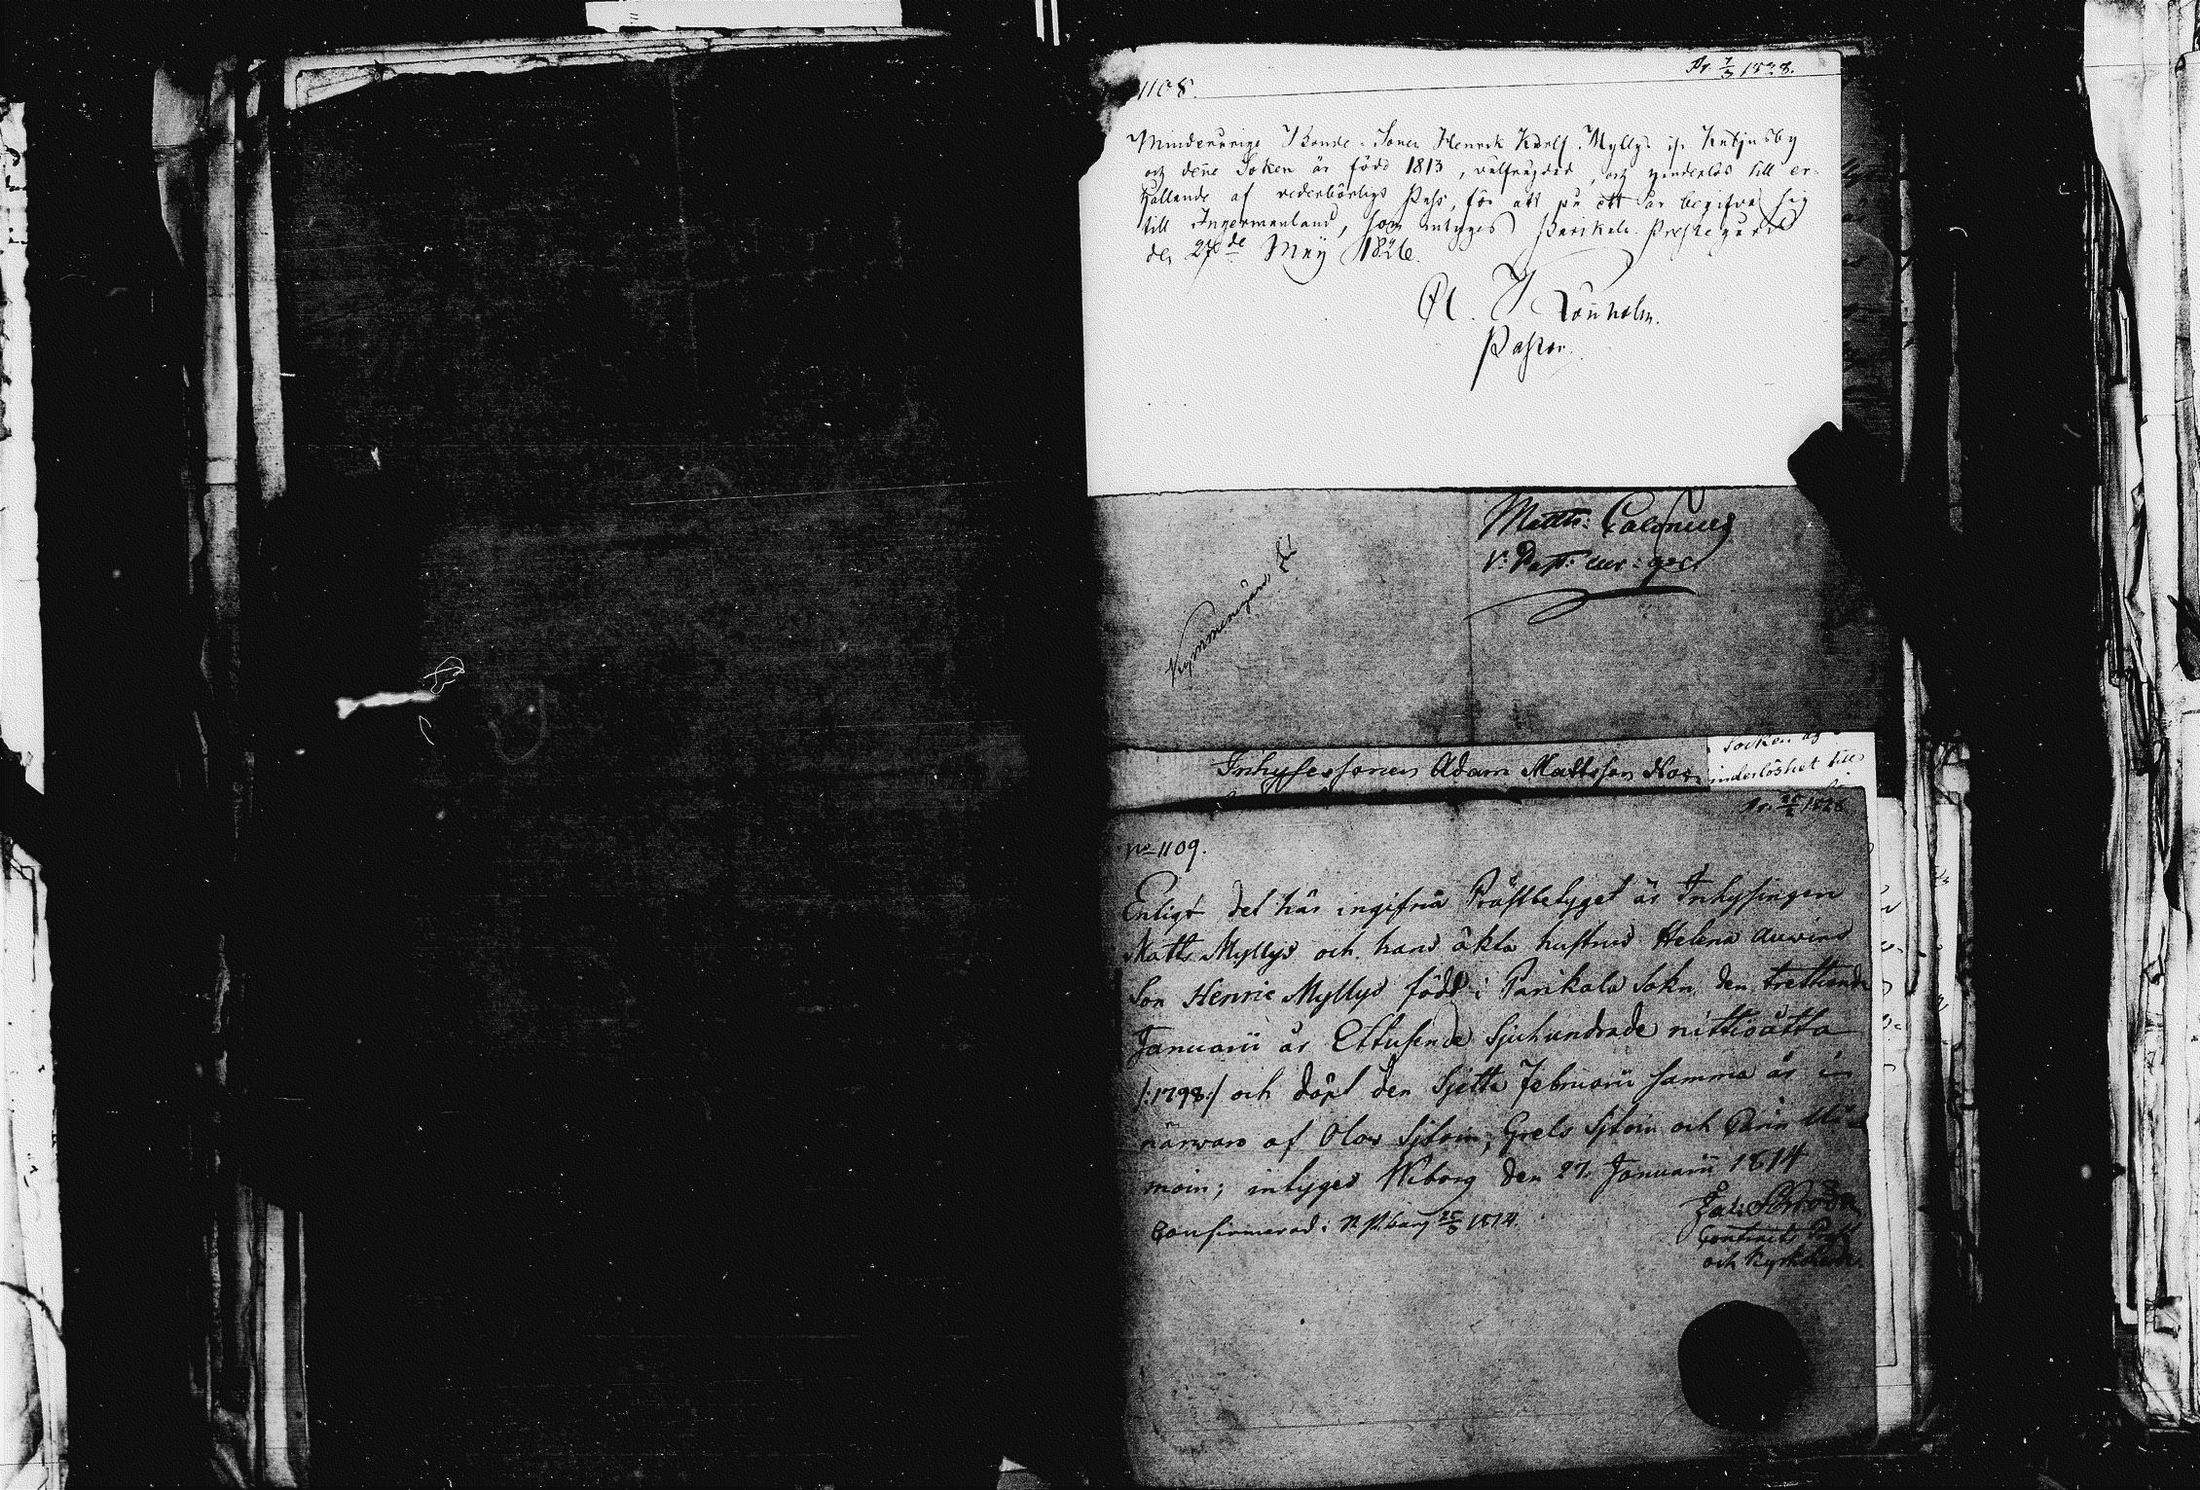 1108.
Pr. 7/3 1828.
Minderårige Bonde-Sonen Henrik Karlss. Myllys ifr.
och denne Soken är född 1813, välfrägdad, och hinderlös till er-
hållande af vederbörligt Pass, för att på ett år begifva sig
till Ingermanland, som intygas Parikala Prestegård
den 27de Maij 1826.
Lönholm.
Pastor.
Matth: Calonius
V: Past:
Kymmenegård
Inhyses sonen Adam Mattsson
Socken af
inderlöshet till
1828
No 1109.
Enligt det här ingifna Prästbetyget är Inhysingen
Matts Myllys och hans äkta hustrus Helena Auvines
Son Henric Myllys född i Parikala Sokn den trettionde
Januarii år Ettusende Sjuhundrade nittioåtta
/:1798:/ och döpt den Sjette Februarii samma år i
närwaro af Olov Sjtoin, Grels Sjtoin och Carin
moin; intygas Wiborg den 27 Januarii 1814
Confirmerad i 1814.
Contracts Prost
och Kyrkoherde.